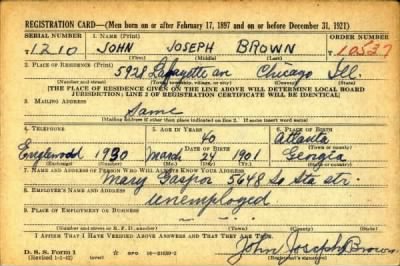 REGISTRATION CARD—(Men born on or after February 17, 1897 and on or before December 31, 1921)
SERIAL NUMBER 1. NAME (Print) ORDER NUMBER
T 1210 JOHN JOSEPH BROWN T 10537
(First) (Middle) (Last)
2. PLACE OF RESIDENCE (Print)
5928 Lafayette av Chicago Ill.
(Number and street) (Town, township, village, or city) (County) (State)
[THE PLACE OF RESIDENCE GIVEN ON THE LINE ABOVE WILL DETERMINE LOCAL BOARD
JURISDICTION; LINE 2 OF REGISTRATION CERTIFICATE WILL BE IDENTICAL]
3. MAILING ADDRESS
Same
[Mailing address if other than place indicated on line 2. If same insert word same]
4. TELEPHONE 5. AGE IN YEARS 6. PLACE OF BIRTH
40 Atlanta
DATE OF BIRTH (Town or county)
Englewood 1930 March 24 1901 Georgia
(Exchange) (Number) (Mo.) (Day) (Yr.) (State or country)
7. NAME AND ADDRESS OF PERSON WHO WILL ALWAYS KNOW YOUR ADDRESS
Mary Gaspor 5648 So Sta str.
8. EMPLOYER'S NAME AND ADDRESS
unemployed
9. PLACE OF EMPLOYMENT OR BUSINESS
(Number and street or R. F. D. number) (Town) (County) (State)
I AFFIRM THAT I HAVE VERIFIED ABOVE ANSWERS AND THAT THEY ARE TRUE.
D. S. S. Form 1 John Joseph Brown
(Revised 1-1-42) (over)